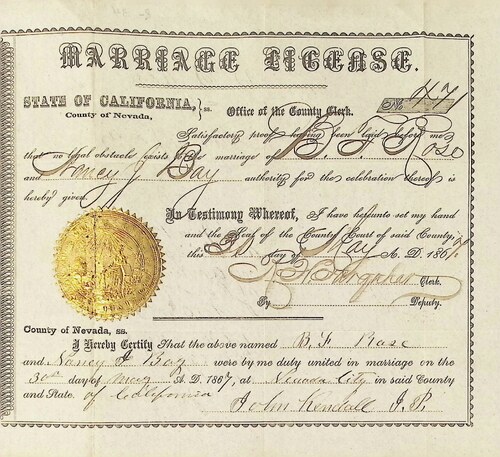 MARRIAGE LICENSE.
STATE OF CALIFORNIA, } ss.
County of Nevada,
Office of the County Clerk.
No. 471
Satisfactory proof having been laid before me
that no legal obstacle exists to the marriage of B. F. Rose
and Nancy J Bay authority for the celebration thereof is
hereby given
In Testimony Whereof, I have hereunto set my hand
and the Seal of the County Court of said County,
this 30 day of May A. D. 1867
Clerk.
By Deputy.
County of Nevada, ss.
I Hereby Certify That the above named B. F. Rose
and Nancy J Bay were by me duly united in marriage on the
30th day of May A. D. 1867, at Nevada City in said County
and State of California
John Kendall J. P.